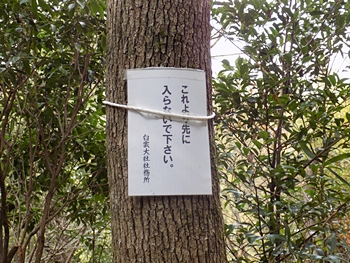 これより先に
入らないで下さい。
白雲大社社務所